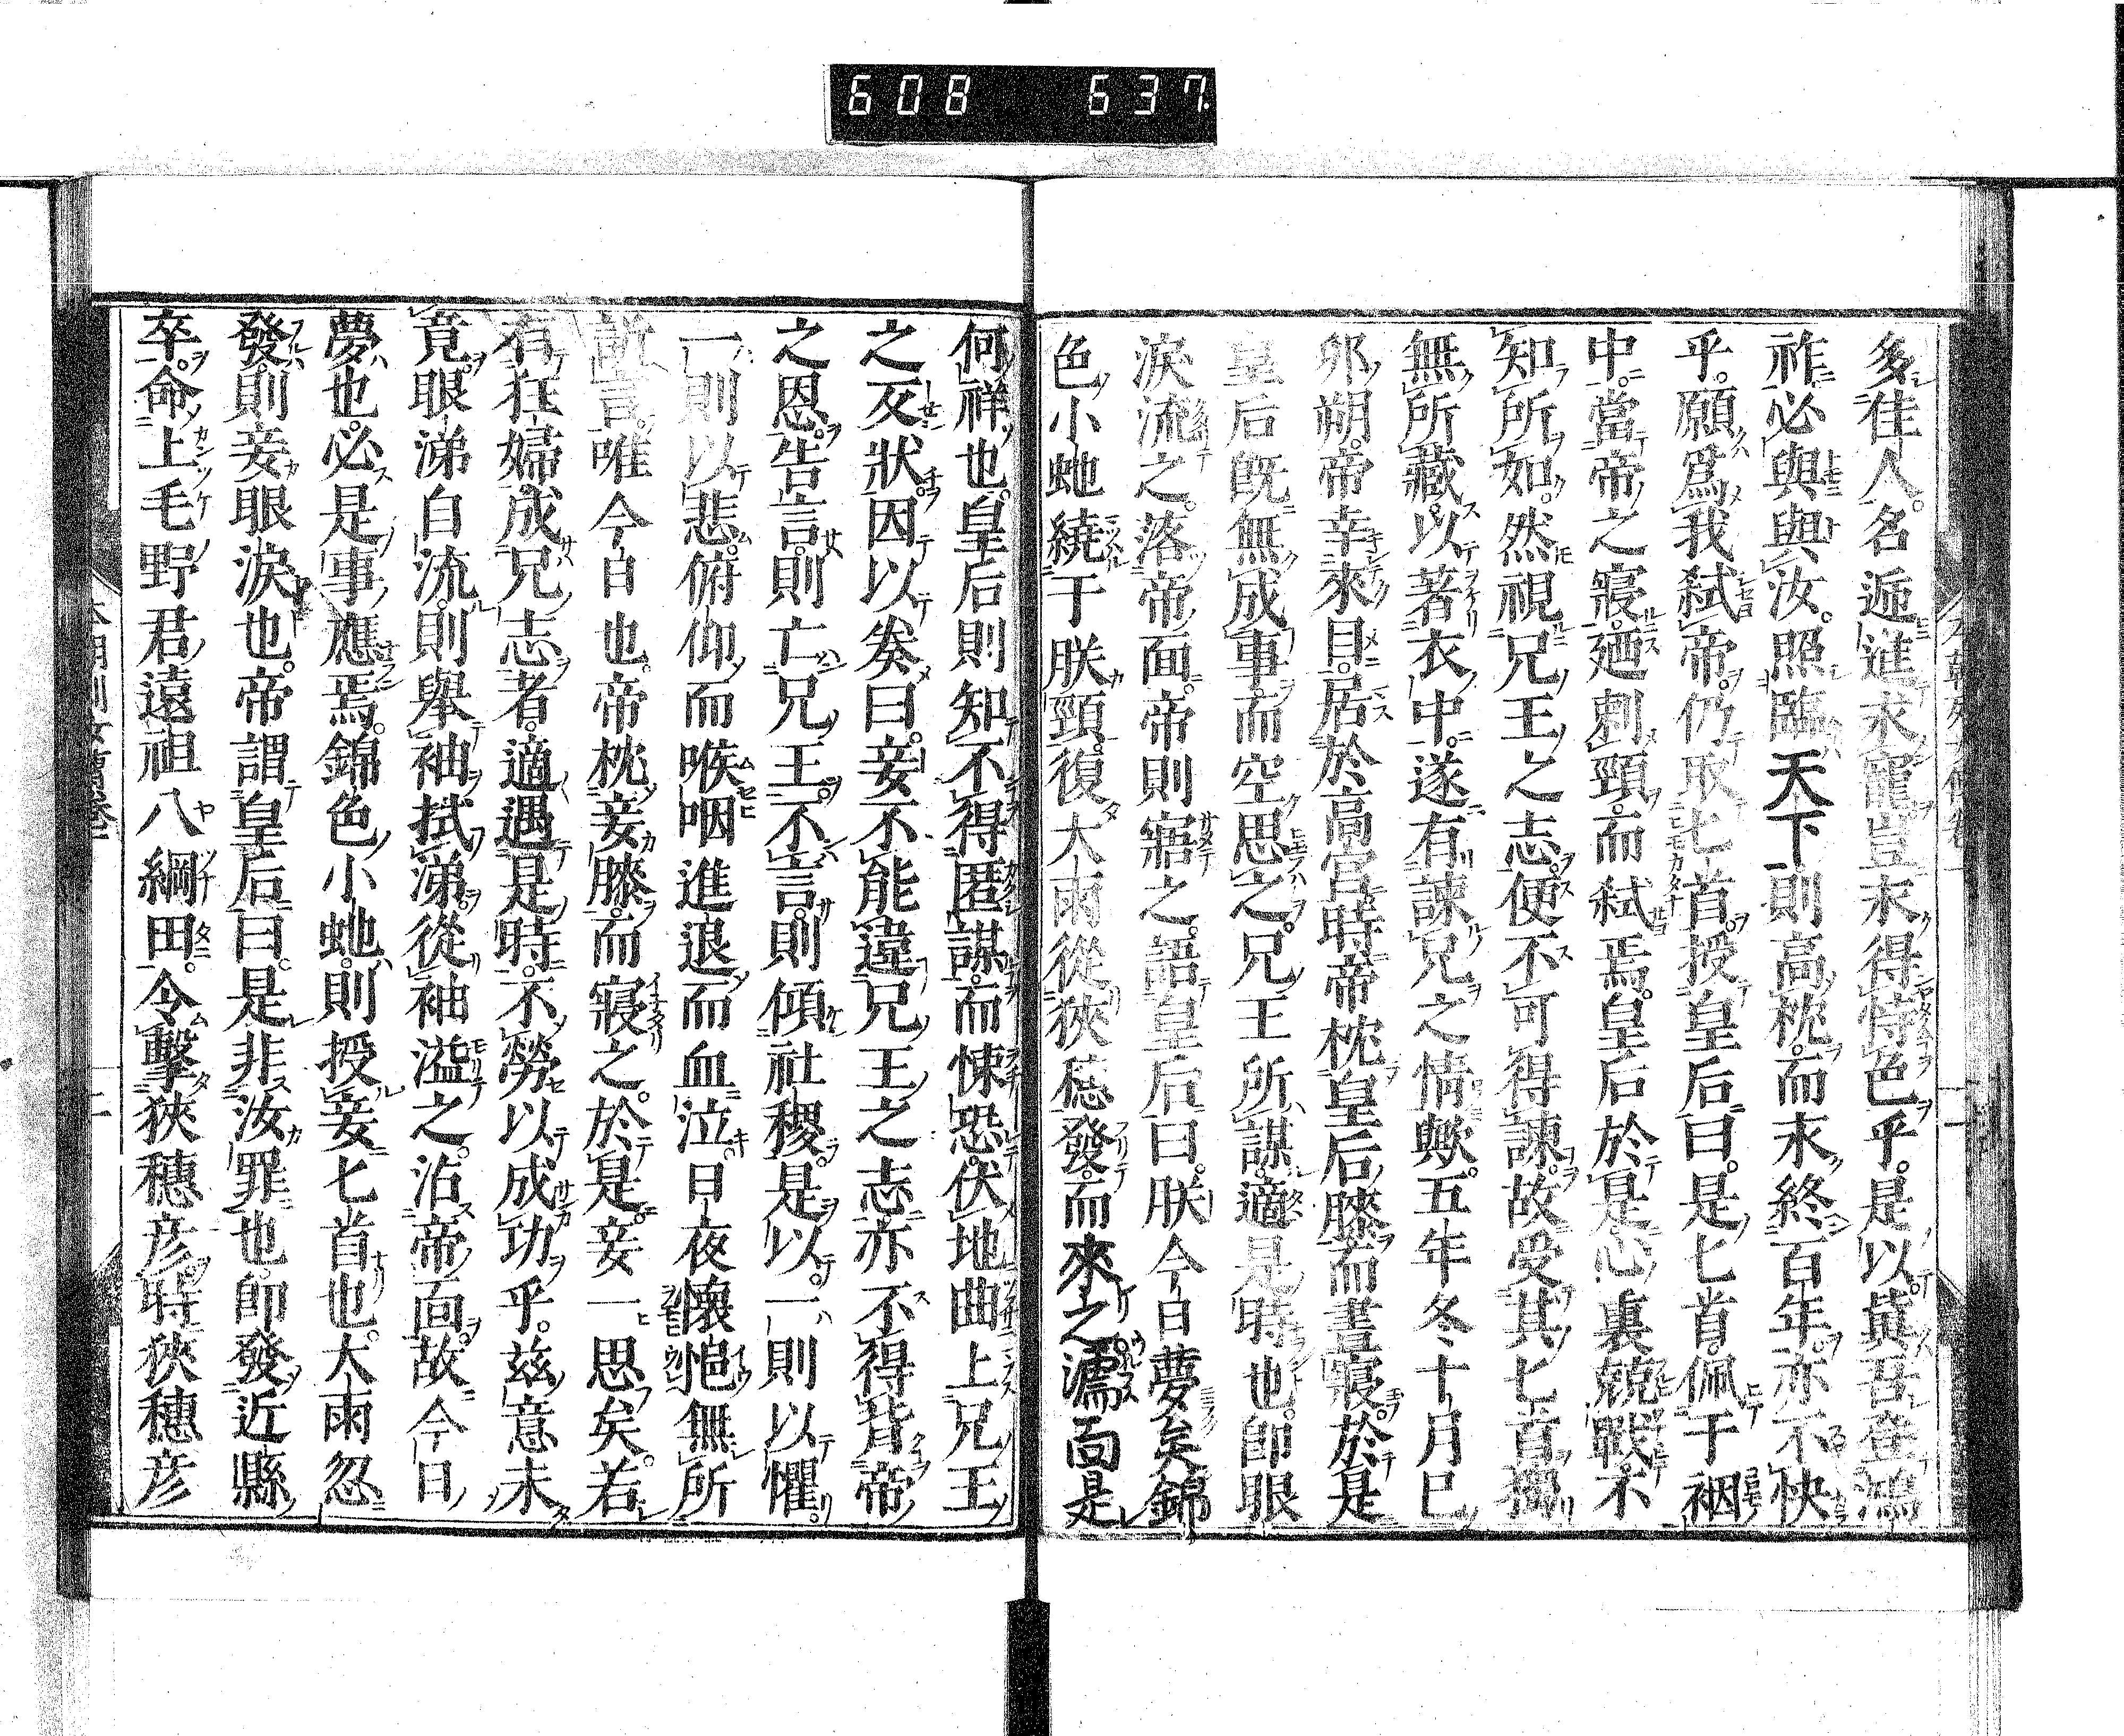 608 637
多佳人名逓進求寵豈永得恃色乎是以冀吾登鴻
祚必與與汝照臨天下則高枕而永終百年亦不快
乎願爲我弑帝仍取匕首授皇后曰是匕首佩于裀
中當帝之寢廼刺頸而弑焉皇后於是心裏兢戰不
知所如然視兄王之志便不可得諫故受其匕首獨
無所藏以著衣中遂有諫兄之情歟五年冬十月己
卯朔帝幸來目居於高宮時帝枕皇后膝而晝寢於是
皇后既無成事而空思之兄王所謀適是時也即眼
淚流之落帝面帝則寤之語皇后曰朕今日夢矣錦
色小蛇繞于朕頸復大雨從狹穂發而來之濡面是
何祥也皇后則知不得匿謀而悚恐伏地曲上兄王
之反狀因以奏曰妾不能違兄王之志亦不得背帝
之恩告言則亡兄王不言則傾社稷是以一則以懼
一則以悲俯仰而喉咽進退而血泣日夜懷悒無所
訴言唯今日也帝枕妾膝而寢之於是妾一思矣若
有狂婦成兄志者適遇是時不勞以成功乎茲意未
竟眼涕自流則擧袖拭涕從袖溢之沾帝面故今日
夢也必是事應焉錦色小蛇則授妾匕首也大雨忽
發則妾眼淚也帝謂皇后曰是非汝罪也即發近縣
卒命上毛野君遠祖八綱田令擊狹穗彥時狹穗彥